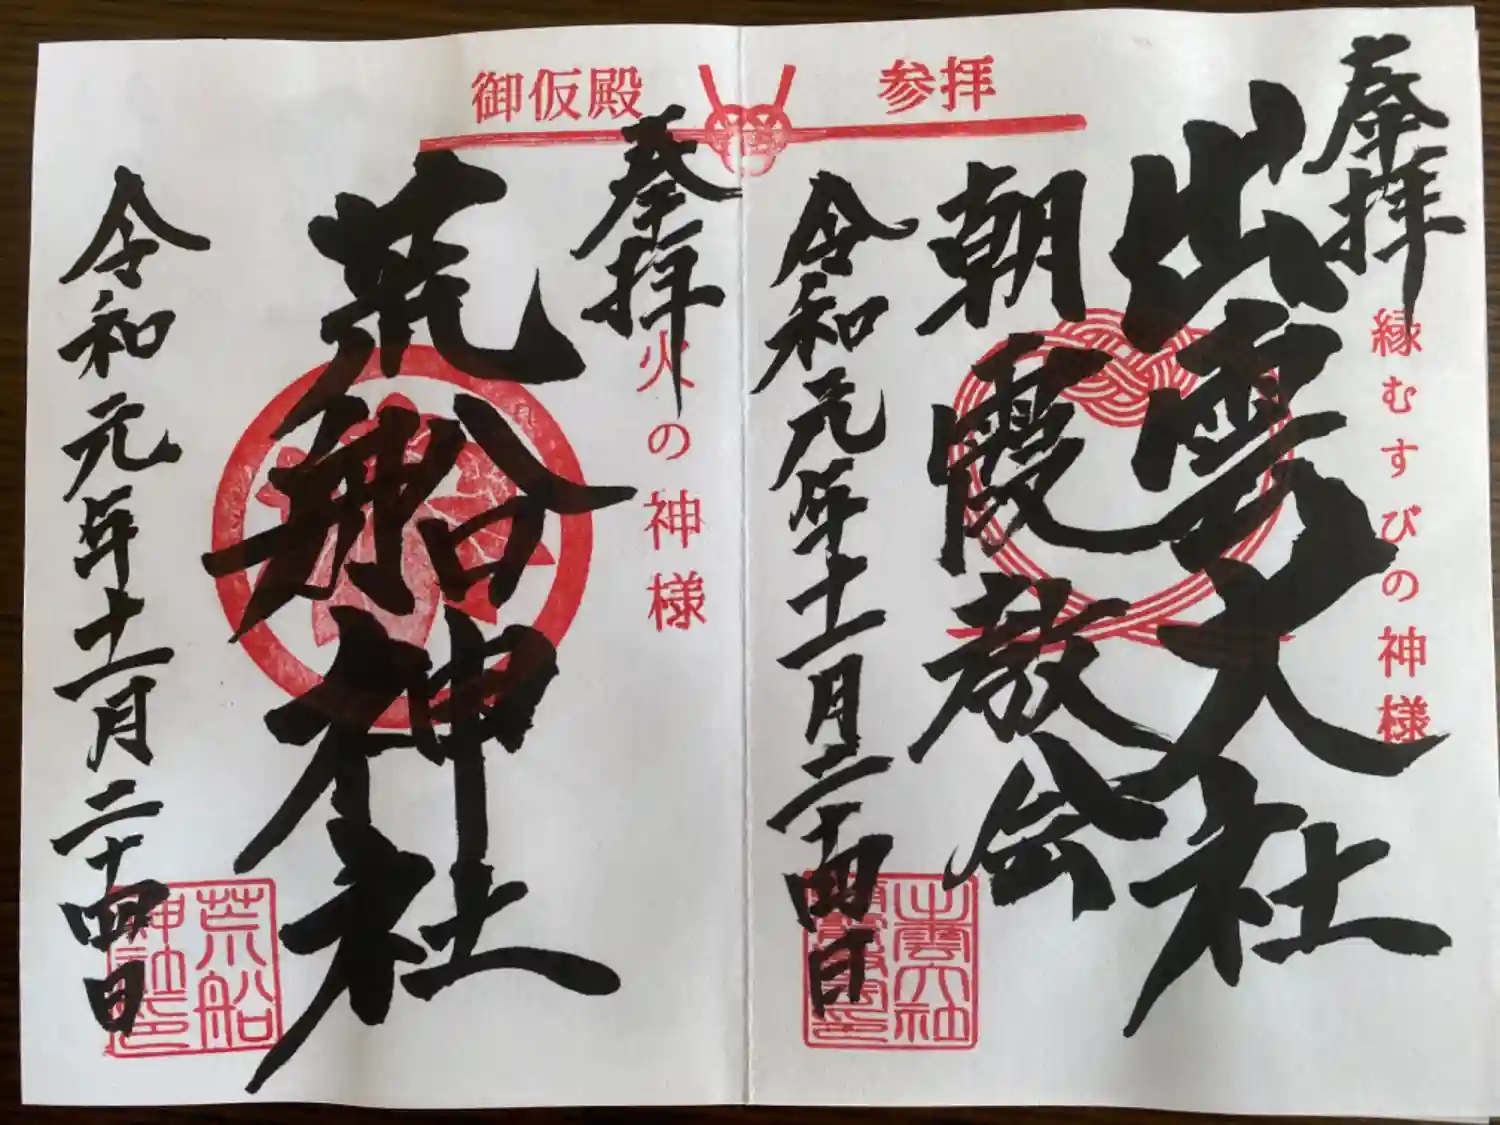 参拝
御仮殿
奉拝
縁むすびの神様
出雲大社
朝霞教会
令和元年十一月二十四日
奉拝
火の神様
荒船神社
令和元年十一月二十四日
出雲大社
荒船
神社印